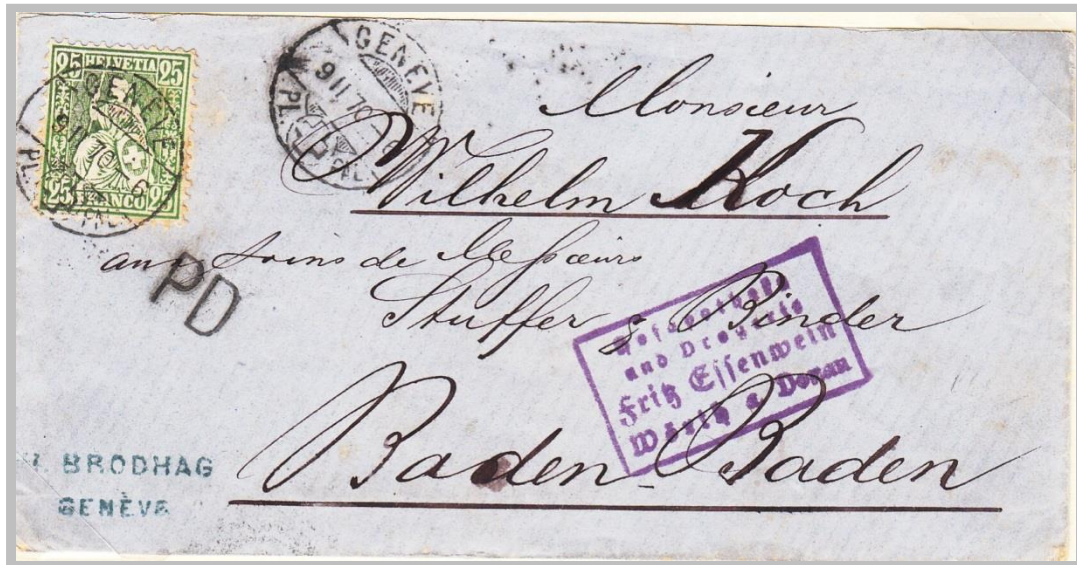 25 HELVETIA 25
25 FRANCO 25
GENÈVE
9 II 70
6
GENÈVE
9 II 70
Monsieur
Wilhelm Koch
aux soins de Messieurs
Stuffer & Binder
Baden-Baden
PD
und Drogerie
Fritz Essenwein
Wörth a Donau
BRODHAG
GENÈVE